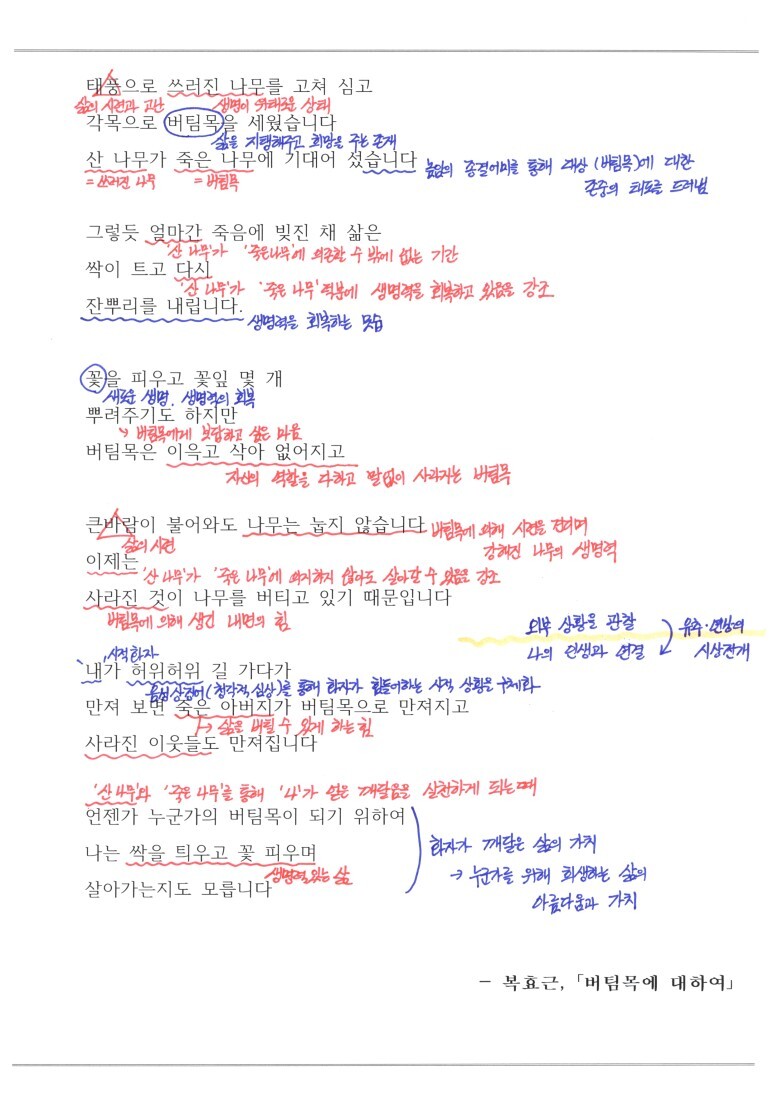 태풍으로 쓰러진 나무를 고쳐 심고
삶의 시련과 고난 생명이 위태로운 상태
각목으로 버팀목을 세웠습니다
삶을 지탱해주고 희망을 주는 존재
산 나무가 죽은 나무에 기대어 섰습니다 높임의 종결어미를 통해 대상(버팀목)에 대한
= 쓰러진 나무 = 버팀목 존중의 태도를 드러냄
그렇듯 얼마간 죽음에 빚진 채 삶은
'산 나무'가 '죽은나무'에 의존할 수 밖에 없는 기간
싹이 트고 다시
'산 나무'가 '죽은 나무' 덕분에 생명력을 회복하고 있음을 강조
잔뿌리를 내립니다.
생명력을 회복하는 모습
꽃을 피우고 꽃잎 몇 개
새로운 생명, 생명력의 회복
뿌려주기도 하지만
↳ 버팀목에게 보답하고 싶은 마음
버팀목은 이윽고 삭아 없어지고
자신의 역할을 다하고 말없이 사라지는 버팀목
큰바람이 불어와도 나무는 눕지 않습니다 버팀목에 의해 시련을 견디며
삶의 시련 강해진 나무의 생명력
이제는
'산 나무'가 '죽은 나무'에 의지하지 않아도 살아갈 수 있음을 강조
사라진 것이 나무를 버티고 있기 때문입니다
버팀목에 의해 생긴 내면의 힘
외부 상황을 관찰
나의 인생과 연결
유추·연상의
시상전개
시적화자
내가 허위허위 길 가다가
음성상징어(청각적 심상)를 통해 화자가 힘들어하는 시적 상황을 구체화
만져 보면 죽은 아버지가 버팀목으로 만져지고
↳ 삶을 버틸 수 있게 하는 힘
사라진 이웃들도 만져집니다
'산 나무'와 '죽은 나무'를 통해 '나'가 얻은 깨달음을 실천하게 되는 때
언젠가 누군가의 버팀목이 되기 위하여
나는 싹을 틔우고 꽃 피우며
생명력 있는 삶
살아가는지도 모릅니다
화자가 깨달은 삶의 가치
→ 누군가를 위해 희생하는 삶의
아름다움과 가치
- 복효근, 「버팀목에 대하여」